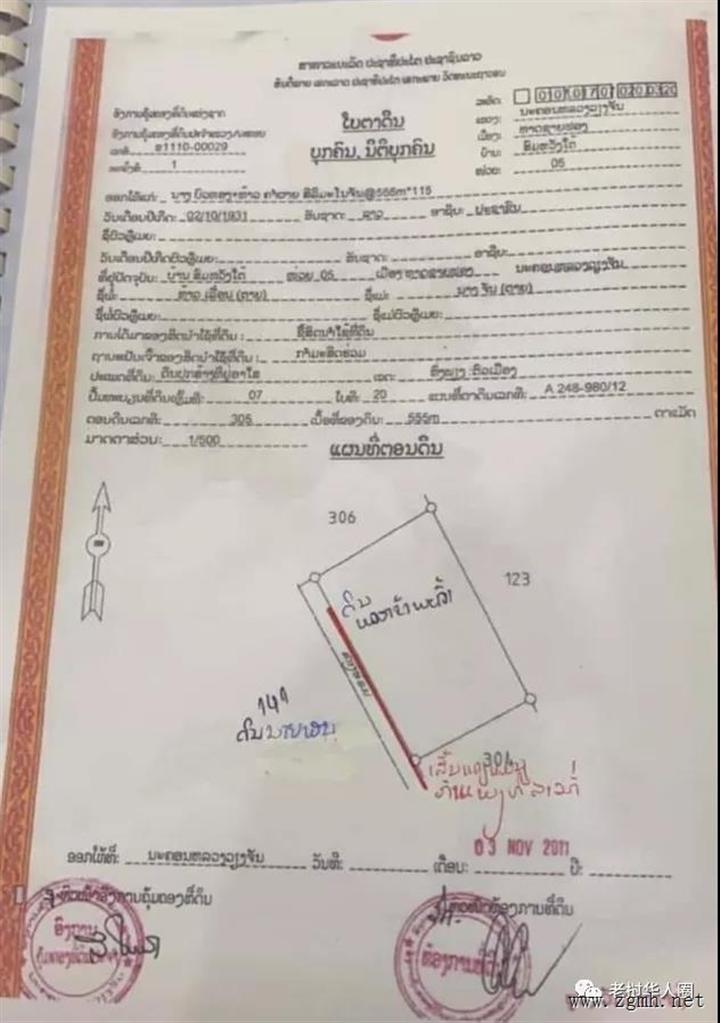 ສາທາລະນະລັດ ປະຊາທິປະໄຕ ປະຊາຊົນລາວ
ສັນຕິພາບ ເອກະລາດ ປະຊາທິປະໄຕ ເອກະພາບ ວັດທະນະຖາວອນ
ອົງການຄຸ້ມຄອງທີ່ດິນແຫ່ງຊາດ
ໃບຕາດິນ
ບຸກຄົນ, ນິຕິບຸກຄົນ
ລະຫັດ:
ແຂວງ: ນະຄອນຫລວງວຽງຈັນ
ເມືອງ: ຫາດຊາຍຟອງ
ບ້ານ: ສີມຫວັງໃຕ້
ໜ່ວຍ: 05
ເລກທີ: 1110-00029
ສະບັບທີ: 1
ອອກໃຫ້ແກ່: ນາງ @555m*115
ວັນເດືອນປີເກີດ: 02/10/1931 ສັນຊາດ: ລາວ ອາຊີບ: ປະຊາຊົນ
ຊື່ຜົວຫຼືເມຍ:
ວັນເດືອນປີເກີດຜົວຫຼືເມຍ: ສັນຊາດ: ອາຊີບ:
ທີ່ຢູ່ປັດຈຸບັນ: ບ້ານ ສີມຫວັງໃຕ້ ໜ່ວຍ 05 ເມືອງ ຫາດຊາຍຟອງ ນະຄອນຫລວງວຽງຈັນ
ຊື່ພໍ່: ທ້າວ (ຕາຍ) ຊື່ແມ່: ນາງ ຈັນ (ຕາຍ)
ຊື່ພໍ່ຜົວຫຼືເມຍ: ຊື່ແມ່ຜົວຫຼືເມຍ:
ການໄດ້ມາຂອງສິດນຳໃຊ້ທີ່ດິນ: ຊື້ສິດນຳໃຊ້ທີ່ດິນ
ຖານະເປັນເຈົ້າຂອງສິດນຳໃຊ້ທີ່ດິນ: ກຳມະສິດຮ່ວມ
ປະເພດທີ່ດິນ: ດິນປຸກສ້າງທີ່ຢູ່ອາໄສ ເຂດ: ຕົວເມືອງ
ປຶ້ມທະບຽນທີ່ດິນເຫຼັ້ມທີ: 07 ໃບທີ: 20 ແຜນທີ່ຕາດິນເລກທີ: A 248-980/12
ຕອນດິນເລກທີ: 305 ເນື້ອທີ່ຂອງດິນ: 555m ຕາແມັດ
ມາດຕາສ່ວນ: 1/500
ແຜນທີ່ຕອນດິນ
306
123
ດິນ
ຂອງຂ້າພະເຈົ້າ
141
304
03 NOV 2011
ອອກໃຫ້ທີ່: ນະຄອນຫລວງວຽງຈັນ ວັນທີ: ເດືອນ: ປີ:
ຫົວໜ້າອົງການຄຸ້ມຄອງທີ່ດິນ
ຫົວໜ້າຫ້ອງການທີ່ດິນ
ອົງການ
老村华人圈
www.zgmh.net